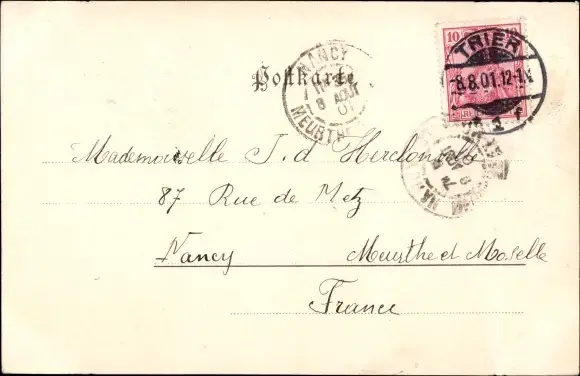 10 10
TRIER
8.8.01.12-1N
* 1 f
NANCY
8 AOUT
01
MEURTH
Postkarte
Mademoiselle J. d
87 Rue de Metz
Nancy Meurthe et Moselle
France